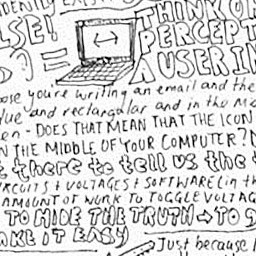 DENTLY EASY
LSE!
THINK OF
PERCEPT
A USER IN
=
ose you're writing an email and the
lue and rectangular and in the mi
en - DOES THAT MEAN THAT THE ICON
N THE MIDDLE OF YOUR COMPUTER? N
t there to tell us the t
IRCUITS + VOLTAGES + SOFTWARE (in th
AMOUNT OF WORK TO TOGGLE VOLTAG
TO HIDE THE TRUTH → TO G
AKE IT EASY
Just because I